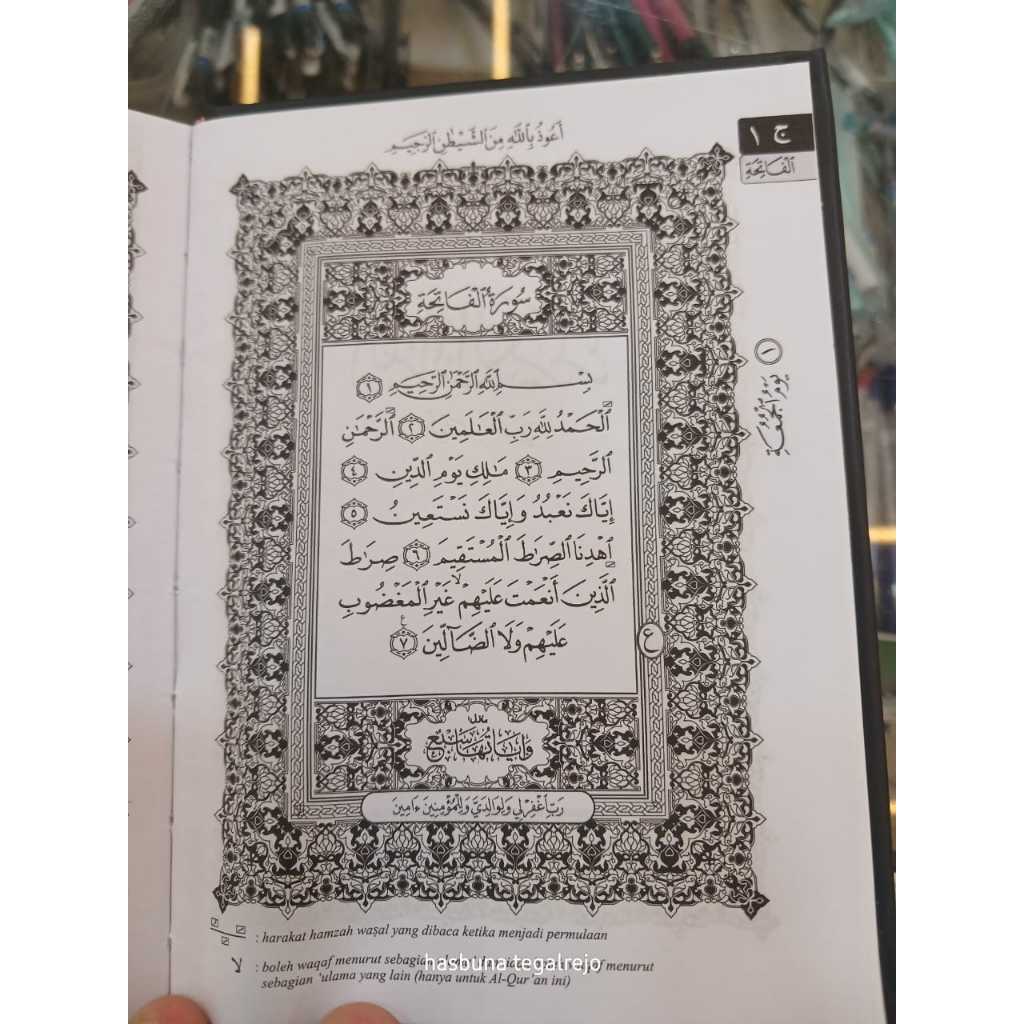 أَعُوذُ بِٱللَّهِ مِنَ ٱلشَّيْطَٰنِ ٱلرَّجِيمِ
ج ١
ٱلْفَاتِحَة
١ يَوْمُ ٱلْجُمُعَةِ
سُورَةُ ٱلْفَاتِحَةِ
بِسْمِ ٱللَّهِ ٱلرَّحْمَٰنِ ٱلرَّحِيمِ ١
ٱلْحَمْدُ لِلَّهِ رَبِّ ٱلْعَٰلَمِينَ ٢ ٱلرَّحْمَٰنِ
ٱلرَّحِيمِ ٣ مَٰلِكِ يَوْمِ ٱلدِّينِ ٤
إِيَّاكَ نَعْبُدُ وَإِيَّاكَ نَسْتَعِينُ ٥
ٱهْدِنَا ٱلصِّرَٰطَ ٱلْمُسْتَقِيمَ ٦ صِرَٰطَ
ٱلَّذِينَ أَنْعَمْتَ عَلَيْهِمْ ۙ غَيْرِ ٱلْمَغْضُوبِ
عَلَيْهِمْ وَلَا ٱلضَّآلِّينَ ٧
ع
وَآيَاتُهَا سَبْعٌ
رَبِّ ٱغْفِرْ لِي وَلِوَالِدَيَّ وَلِلْمُؤْمِنِينَ ءَامِينَ
: harakat hamzah waṣal yang dibaca ketika menjadi permulaan
لا : boleh waqaf menurut sebagian waqaf menurut
sebagian 'ulama yang lain (hanya untuk Al-Qur'an ini)
hasbuna tegalrejo